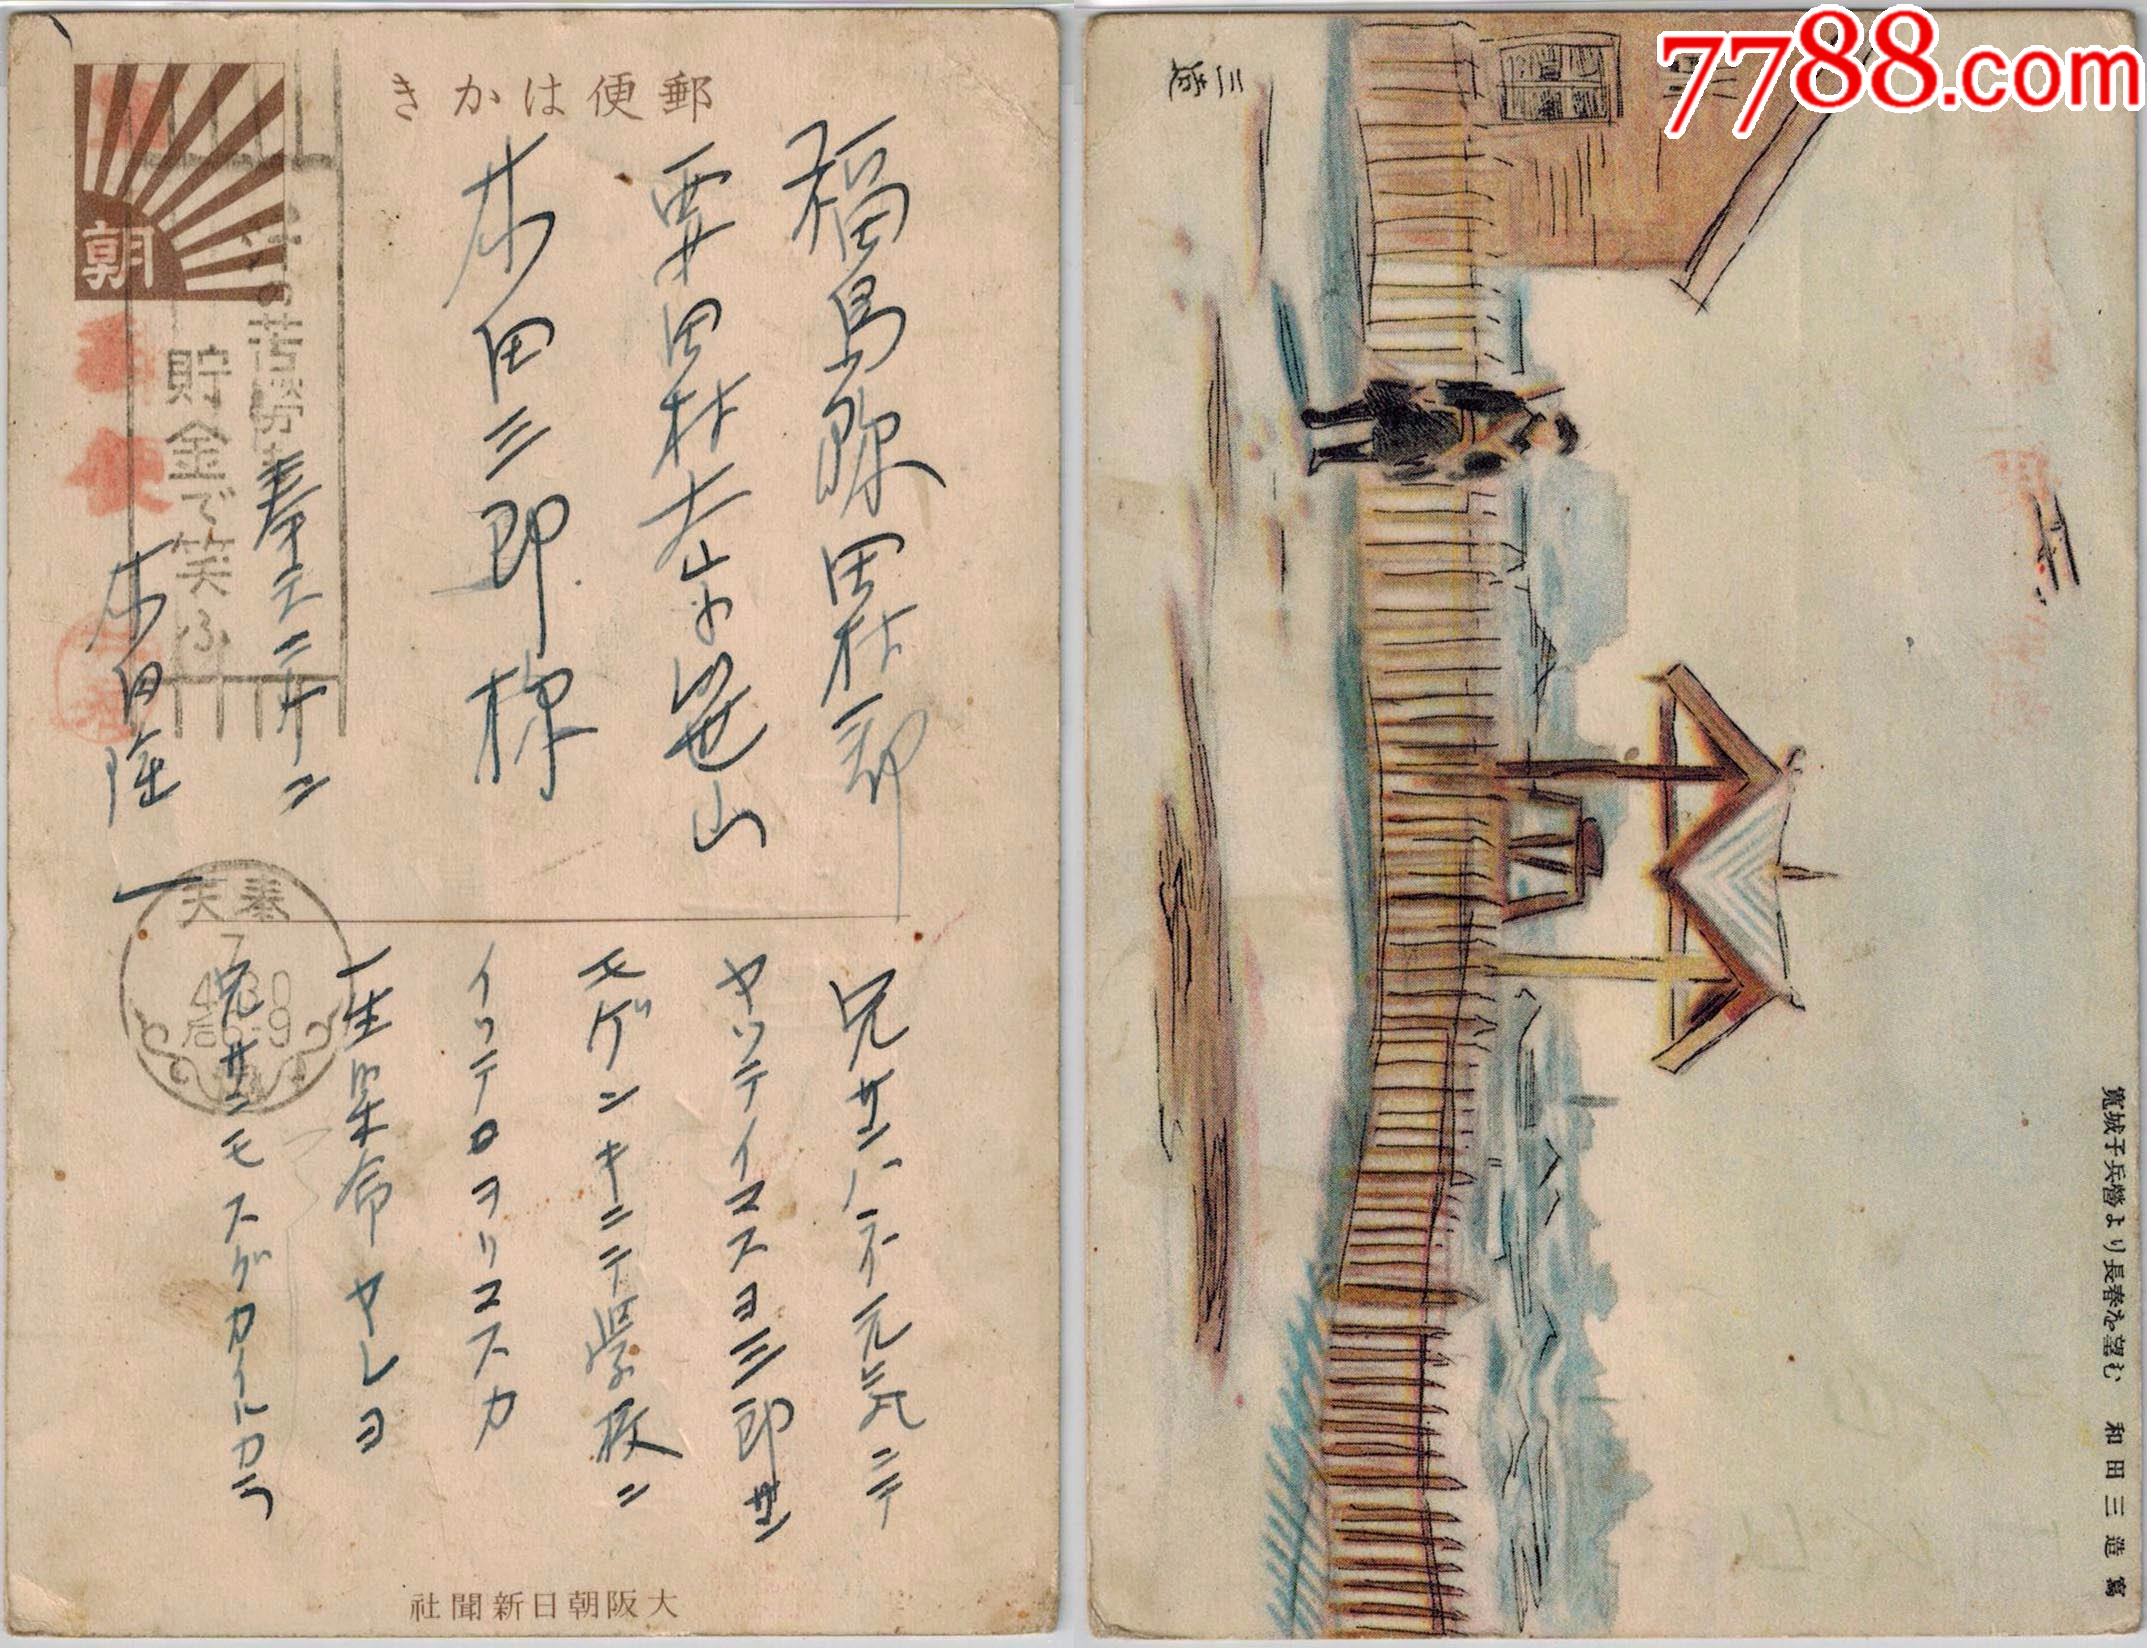 郵便はかき
朝
軍事郵便
貯金で笑ふ
福島縣田村郡
本田三郎様
奉天ニテ
本田隆一
奉天
7
4.30
兄サンハ元気ニテ
ヤッテイマスヨ三郎サン
モゲンキニテ学校ニ
イッテヲリマスカ
一生ケン命ヤレヨ
兄サンモスグカイルカラ
大阪朝日新聞社
三造
寛城子兵營より長春を望む　和田三造寫
7788.com